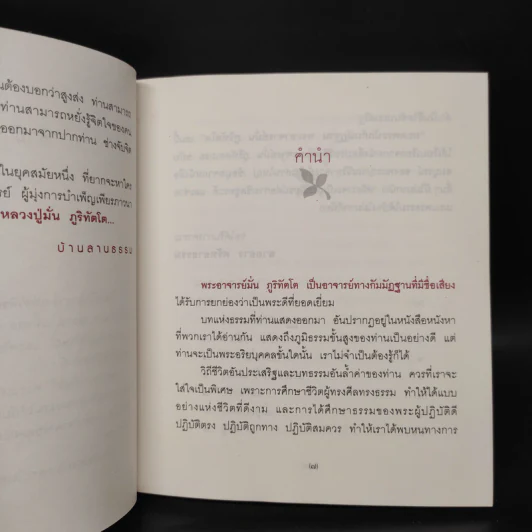 นต้องบอกว่าสูงส่ง ท่านสามารถ
ท่านสามารถหยั่งรู้จิตใจของคน
ออกมาจากปากท่าน ช่างจับจิต
ในยุคสมัยหนึ่ง ที่ยากจะหาใคร
รย์ ผู้มุ่งการบำเพ็ญเพียรภาวนา
หลวงปู่มั่น ภูริทัตโต...
บ้านลานธรรม
คำนำ
พระอาจารย์มั่น ภูริทัตโต เป็นอาจารย์ทางกัมมัฏฐานที่มีชื่อเสียง
ได้รับการยกย่องว่าเป็นพระดีที่ยอดเยี่ยม
บทแห่งธรรมที่ท่านแสดงออกมา อันปรากฏอยู่ในหนังสือหนังหา
ที่พวกเราได้อ่านกัน แสดงถึงภูมิธรรมขั้นสูงของท่านเป็นอย่างดี แต่
ท่านจะเป็นพระอริยบุคคลชั้นใดนั้น เราไม่จำเป็นต้องรู้ก็ได้
วิถีชีวิตอันประเสริฐและบทธรรมอันล้ำค่าของท่าน ควรที่เราจะ
ใส่ใจเป็นพิเศษ เพราะการศึกษาชีวิตผู้ทรงศีลทรงธรรม ทำให้ได้แบบ
อย่างแห่งชีวิตที่ดีงาม และการได้ศึกษาธรรมของพระผู้ปฏิบัติดี
ปฏิบัติตรง ปฏิบัติถูกทาง ปฏิบัติสมควร ทำให้เราได้พบหนทางการ